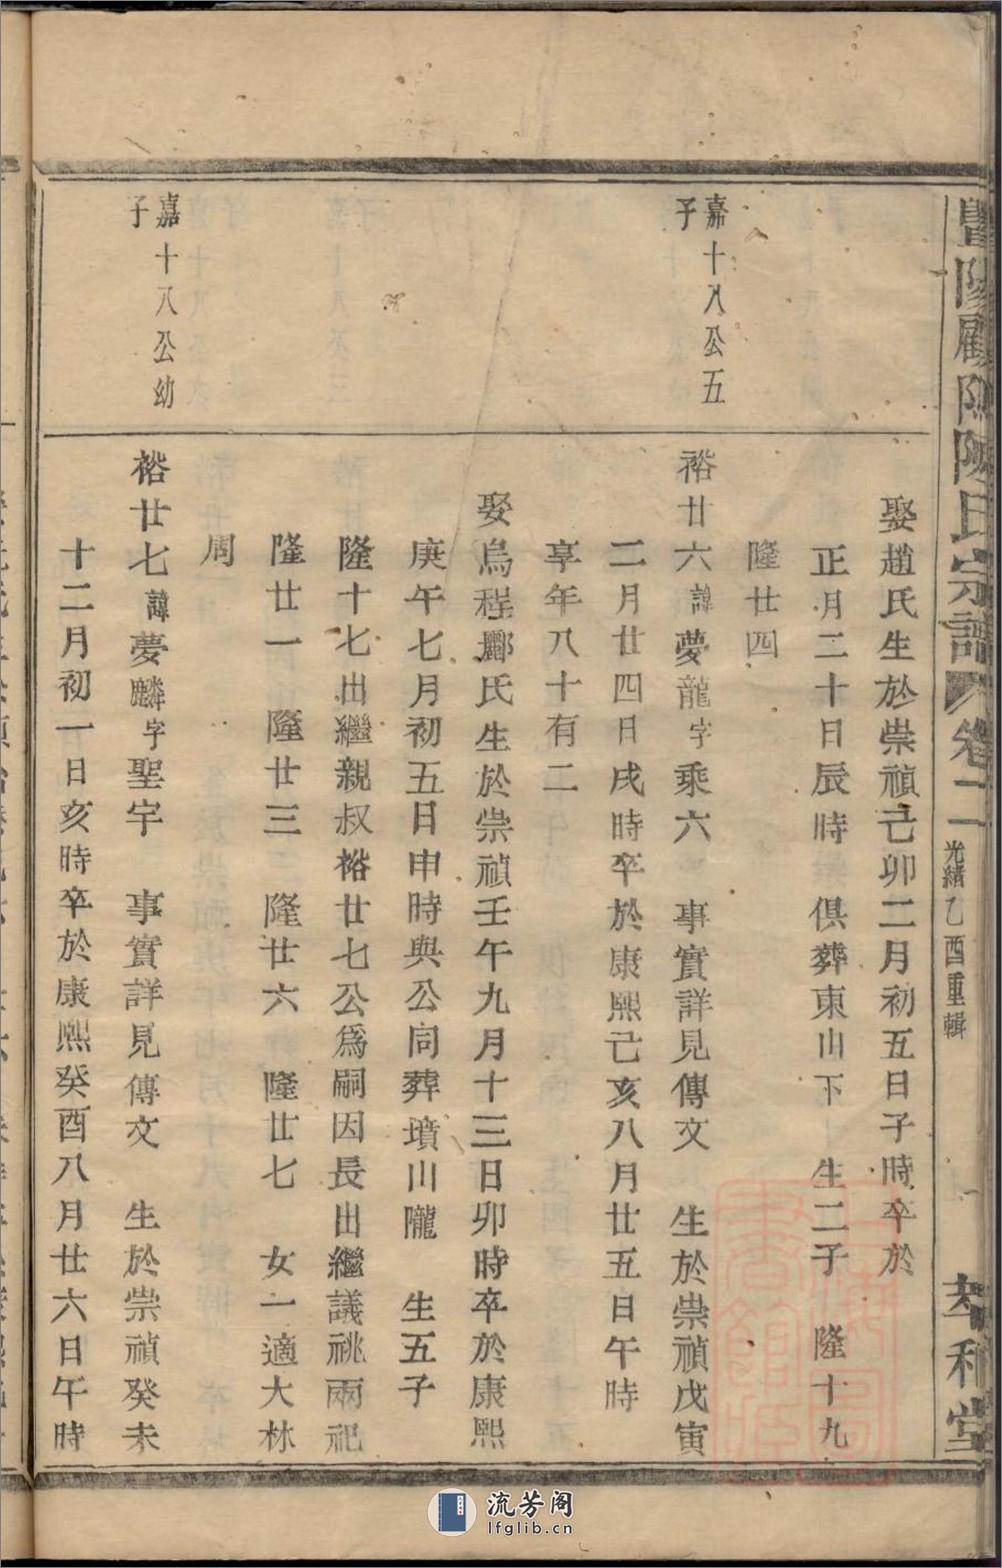 暨陽顧陳陳氏宗譜 卷二 光緒乙酉重輯 孝和堂
娶趙氏生於崇禎己卯二月初五日子時卒於
正月二十日辰時 俱葬東山下 生二子 隆十九
隆廿四
嘉十八公五
子
裕廿六諱夢龍字乘六 事實詳見傳文 生於崇禎戊寅
二月廿四日戌時卒於康熙己亥八月廿五日午時
享年八十有二
娶烏程酈氏生於崇禎壬午九月十三日卯時卒於康熙
庚午七月初五日申時與公同葬墳山隴 生五子
隆十七出繼親叔裕廿七公爲嗣因長出繼議祧兩祀
隆廿一 隆廿三 隆廿六 隆廿七 女一適大林
周
嘉十八公幼
子
裕廿七諱夢麟字聖宇 事實詳見傳文 生於崇禎癸未
十二月初一日亥時卒於康熙癸酉八月廿六日午時
流芳阁
lfglib.cn